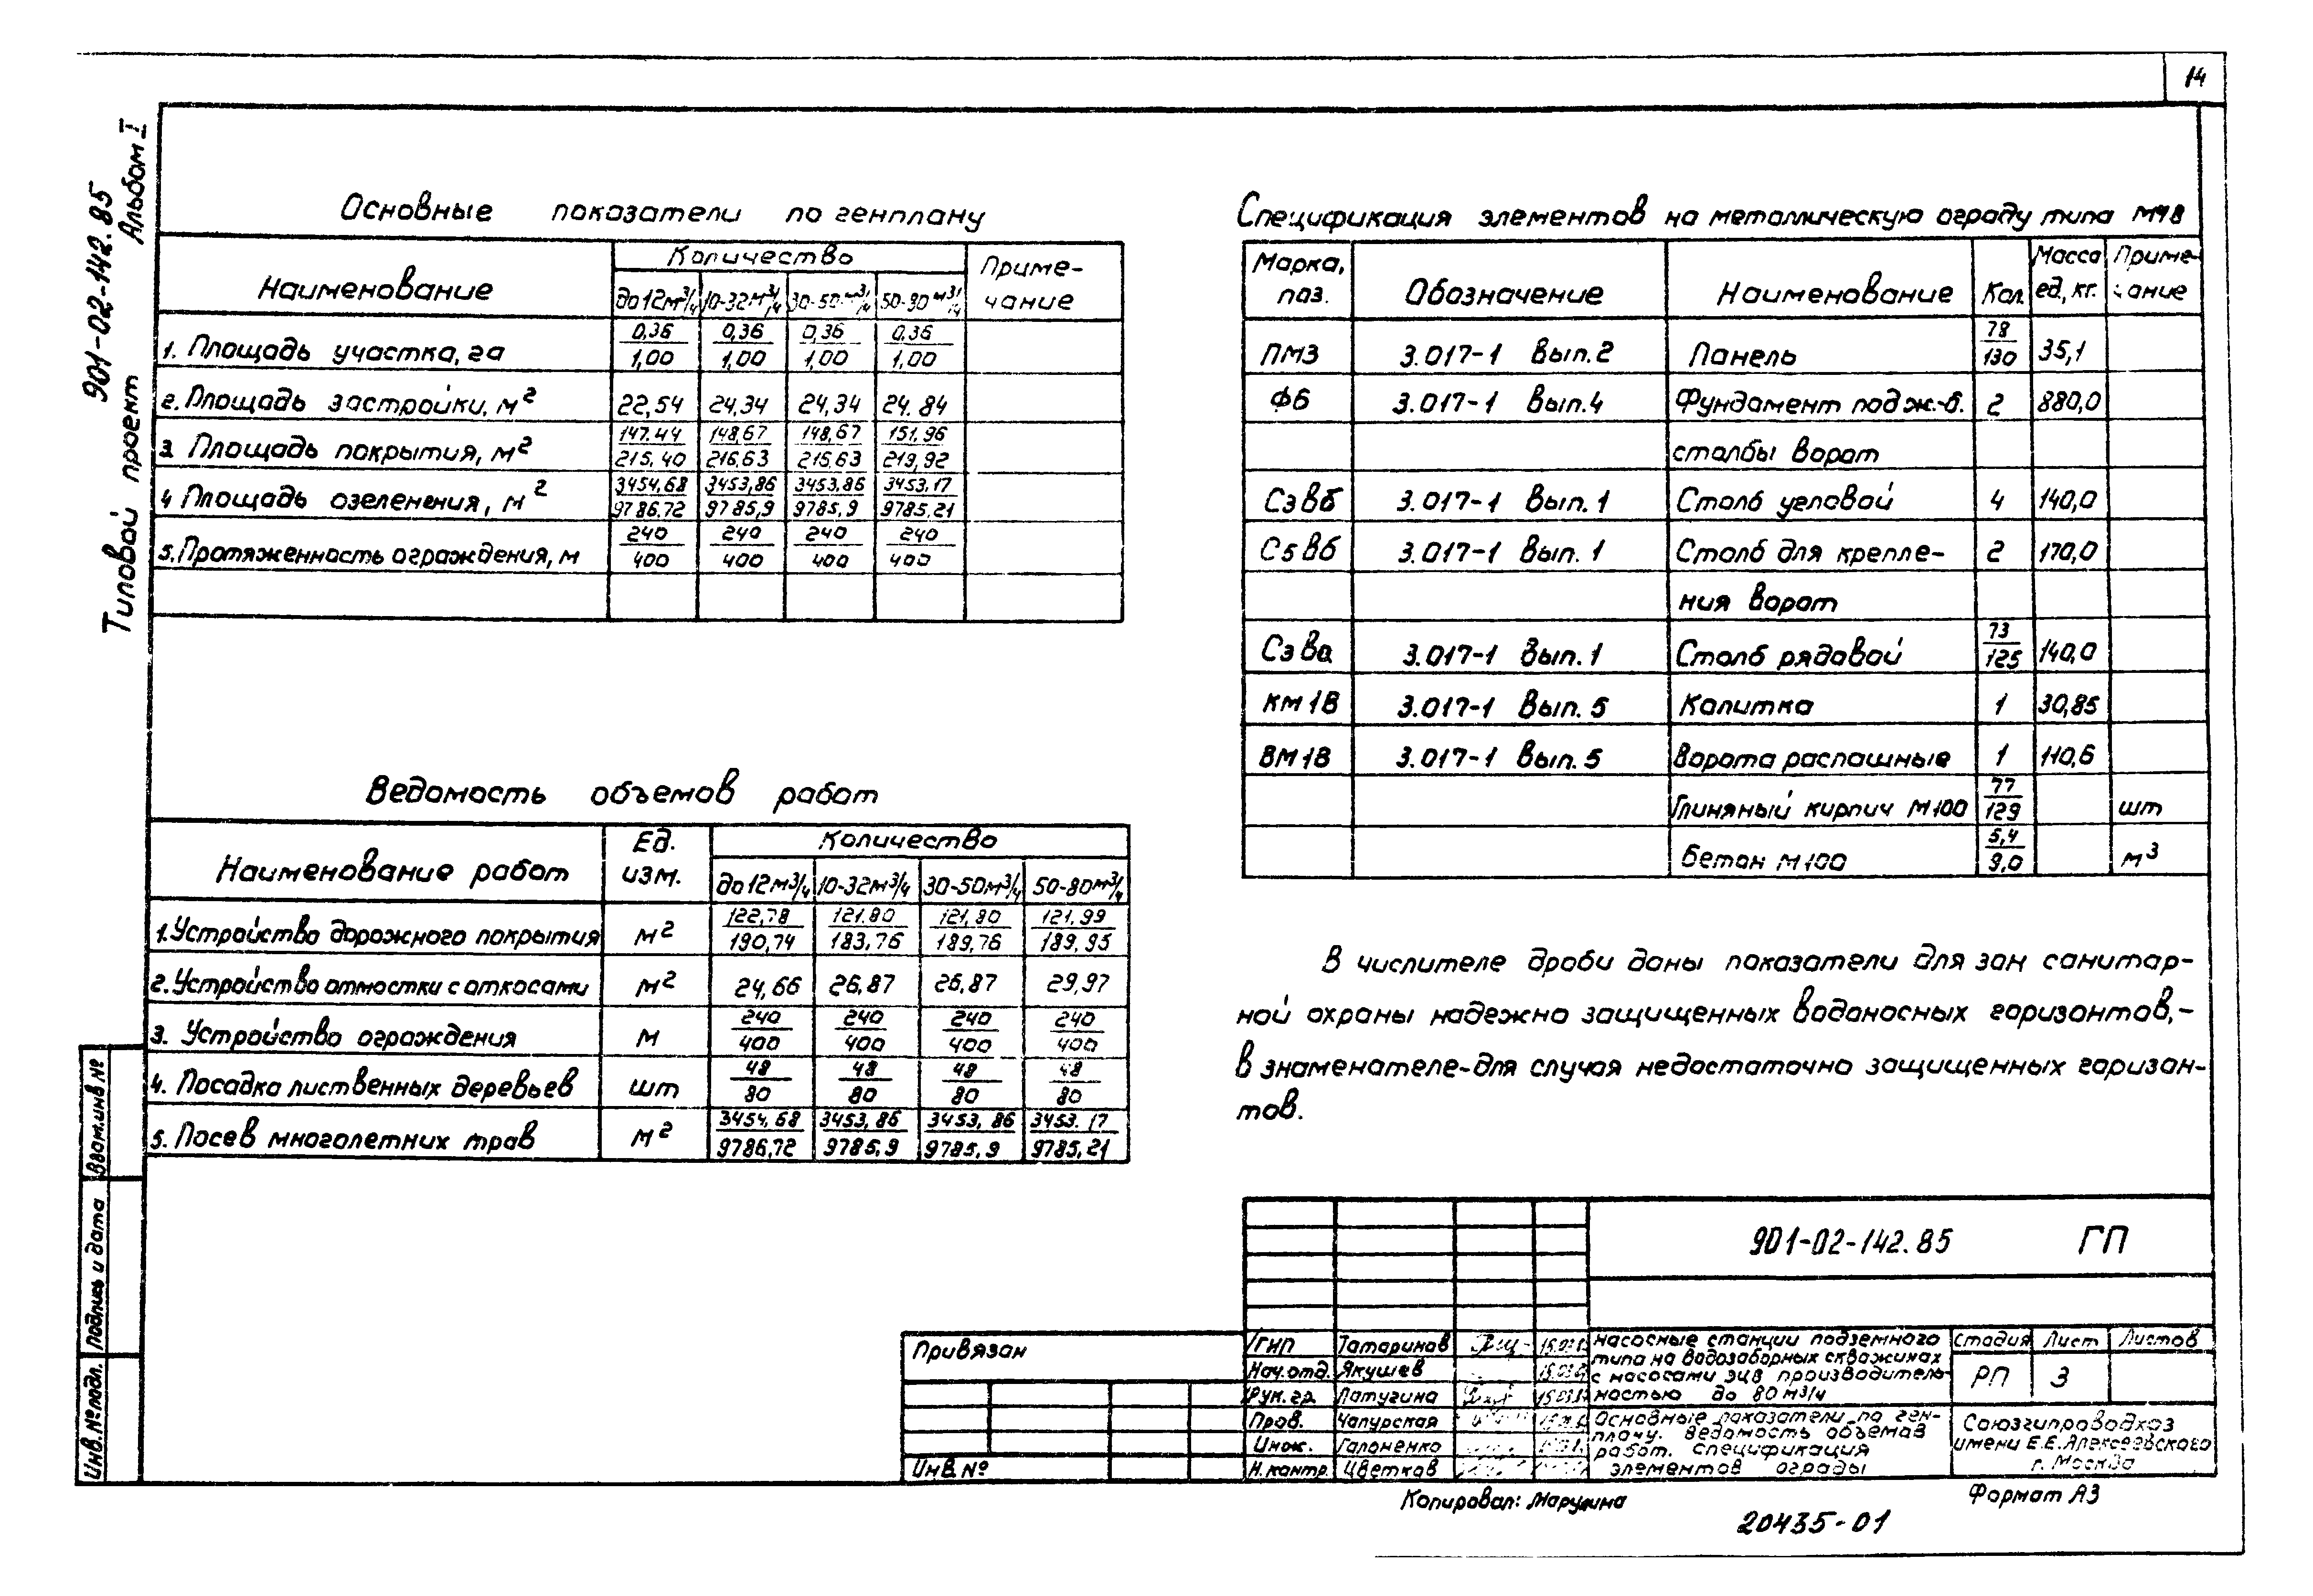 14
Типовой проект 901-02-142.85 Альбом I
Основные показатели по генплану
Наименование | Количество | Приме-чание
до 12 м³/ч | 10-32 м³/ч | 30-50 м³/ч | 50-80 м³/ч
1. Площадь участка, га | 0,36/1,00 | 0,36/1,00 | 0,36/1,00 | 0,36/1,00
2. Площадь застройки, м² | 22,54 | 24,34 | 24,34 | 24.84
3. Площадь покрытия, м² | 147.44/215.40 | 148,67/216.63 | 148,67/216.63 | 151.96/219,92
4 Площадь озеленения, м² | 3454,68/9786.72 | 3453,86/9785,9 | 3453.86/9785,9 | 3453.17/9785.21
5. Протяженность ограждения, м | 240/400 | 240/400 | 240/400 | 240/400
Ведомость объемов работ
Наименование работ | Ед. изм. | Количество
до 12 м³/ч | 10-32 м³/ч | 30-50 м³/ч | 50-80 м³/ч
1. Устройство дорожного покрытия | м² | 122,78/190,74 | 121.80/183,76 | 121,80/189,76 | 121.99/189,95
2. Устройство отмостки с откосами | м² | 24,66 | 26,87 | 26,87 | 29,97
3. Устройство ограждения | м | 240/400 | 240/400 | 240/400 | 240/400
4. Посадка лиственных деревьев | шт | 48/80 | 48/80 | 48/80 | 48/80
5. Посев многолетних трав | м² | 3454,68/9786,72 | 3453,86/9785,9 | 3453,86/9785,9 | 3453.17/9785,21
Спецификация элементов на металлическую ограду типа М1В
Марка, поз. | Обозначение | Наименование | Кол. | Масса ед, кг. | Приме-чание
ПМ3 | 3.017-1 Вып.2 | Панель | 78/130 | 35,1
Ф6 | 3.017-1 Вып.4 | Фундамент под ж.-б. | 2 | 880,0
столбы ворот
С3Вб | 3.017-1 Вып.1 | Столб угловой | 4 | 140,0
С5Вб | 3.017-1 Вып.1 | Столб для крепле- | 2 | 170,0
ния ворот
С3Ва | 3.017-1 Вып.1 | Столб рядовой | 73/125 | 140,0
КМ1В | 3.017-1 Вып.5 | Калитка | 1 | 30,85
ВМ1В | 3.017-1 Вып.5 | Ворота распашные | 1 | 110,6
Глиняный кирпич М100 | 77/129 | шт
Бетон М100 | 5,4/9,0 | м³
В числителе дроби даны показатели для зон санитар-
ной охраны надежно защищенных водоносных горизонтов,-
в знаменателе-для случая недостаточно защищенных горизон-
тов.
Взам.инв №
Подпись и дата
Инв.№подл.
Привязан
Инв.№
901-02-142.85 ГП
ГИП Татаринов
Нач.отд. Якушев
Рук.гр. Латугина
Пров. Чапурская
Инж. Гапоненко
Н.контр. Цветков
Насосные станции подземного
типа на водозаборных скважинах
с насосами ЭЦВ производитель-
ностью до 80 м3/ч
Стадия | Лист | Листов
РП | 3
Основные показатели по ген-
плану. Ведомость объемов
работ. Спецификация
элементов ограды
Союзгипроводхоз
имени Е.Е.Алексеевского
г. Москва
Копировал: Марулина
Формат А3
20435-01